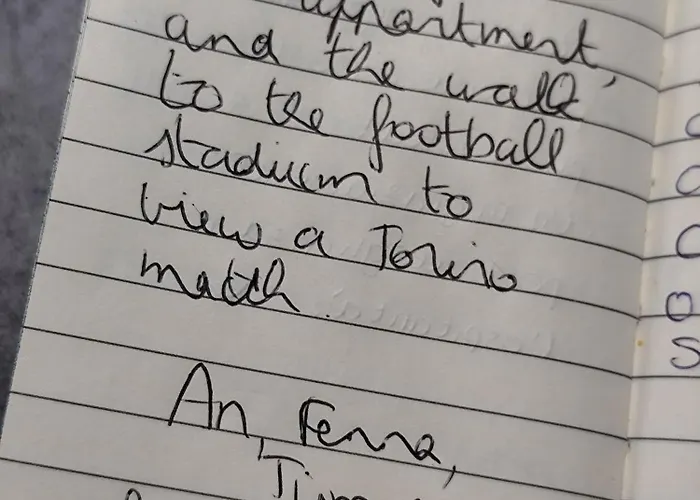 appartment,
and the walk
to the football
stadium to
view a Torino
match.
An, Fenna,